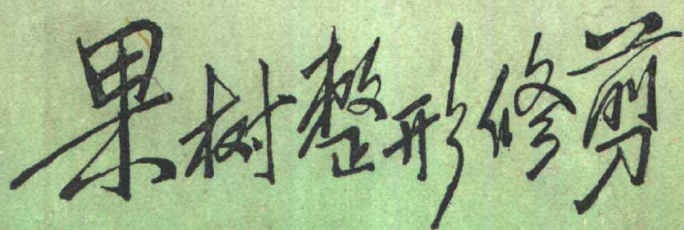 果树整形修剪